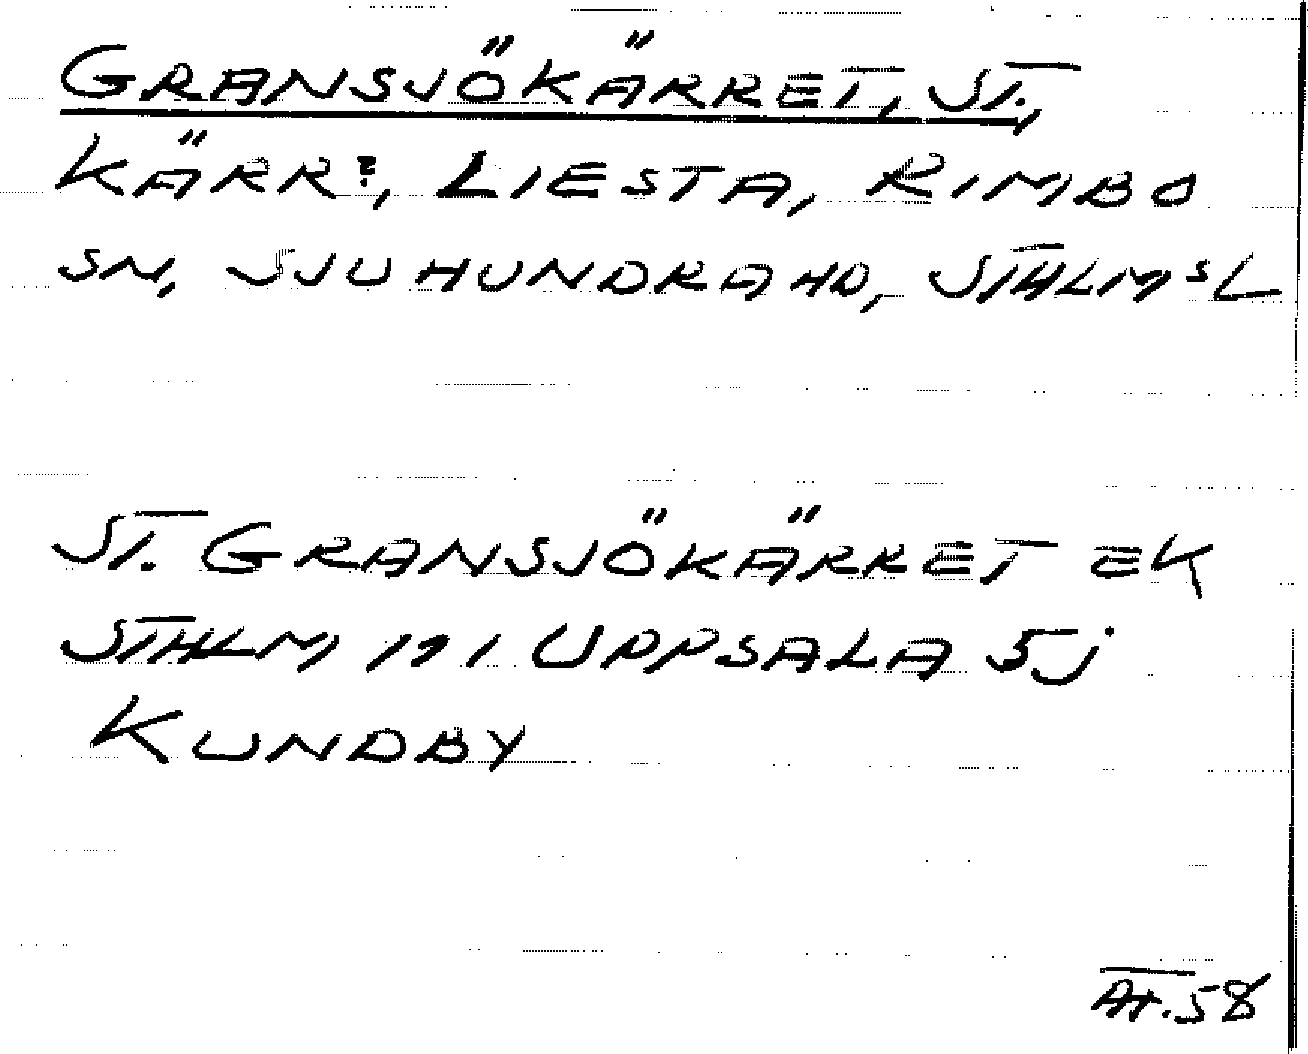 GRANSJÖKÄRRET, ST.,
KÄRR?, LIESTA, RIMBO
SN, SJUHUNDRA HD, STHLMSL
ST. GRANSJÖKÄRRET EK
STHLM 191 UPPSALA 5j
KUNDBY
AT. 58